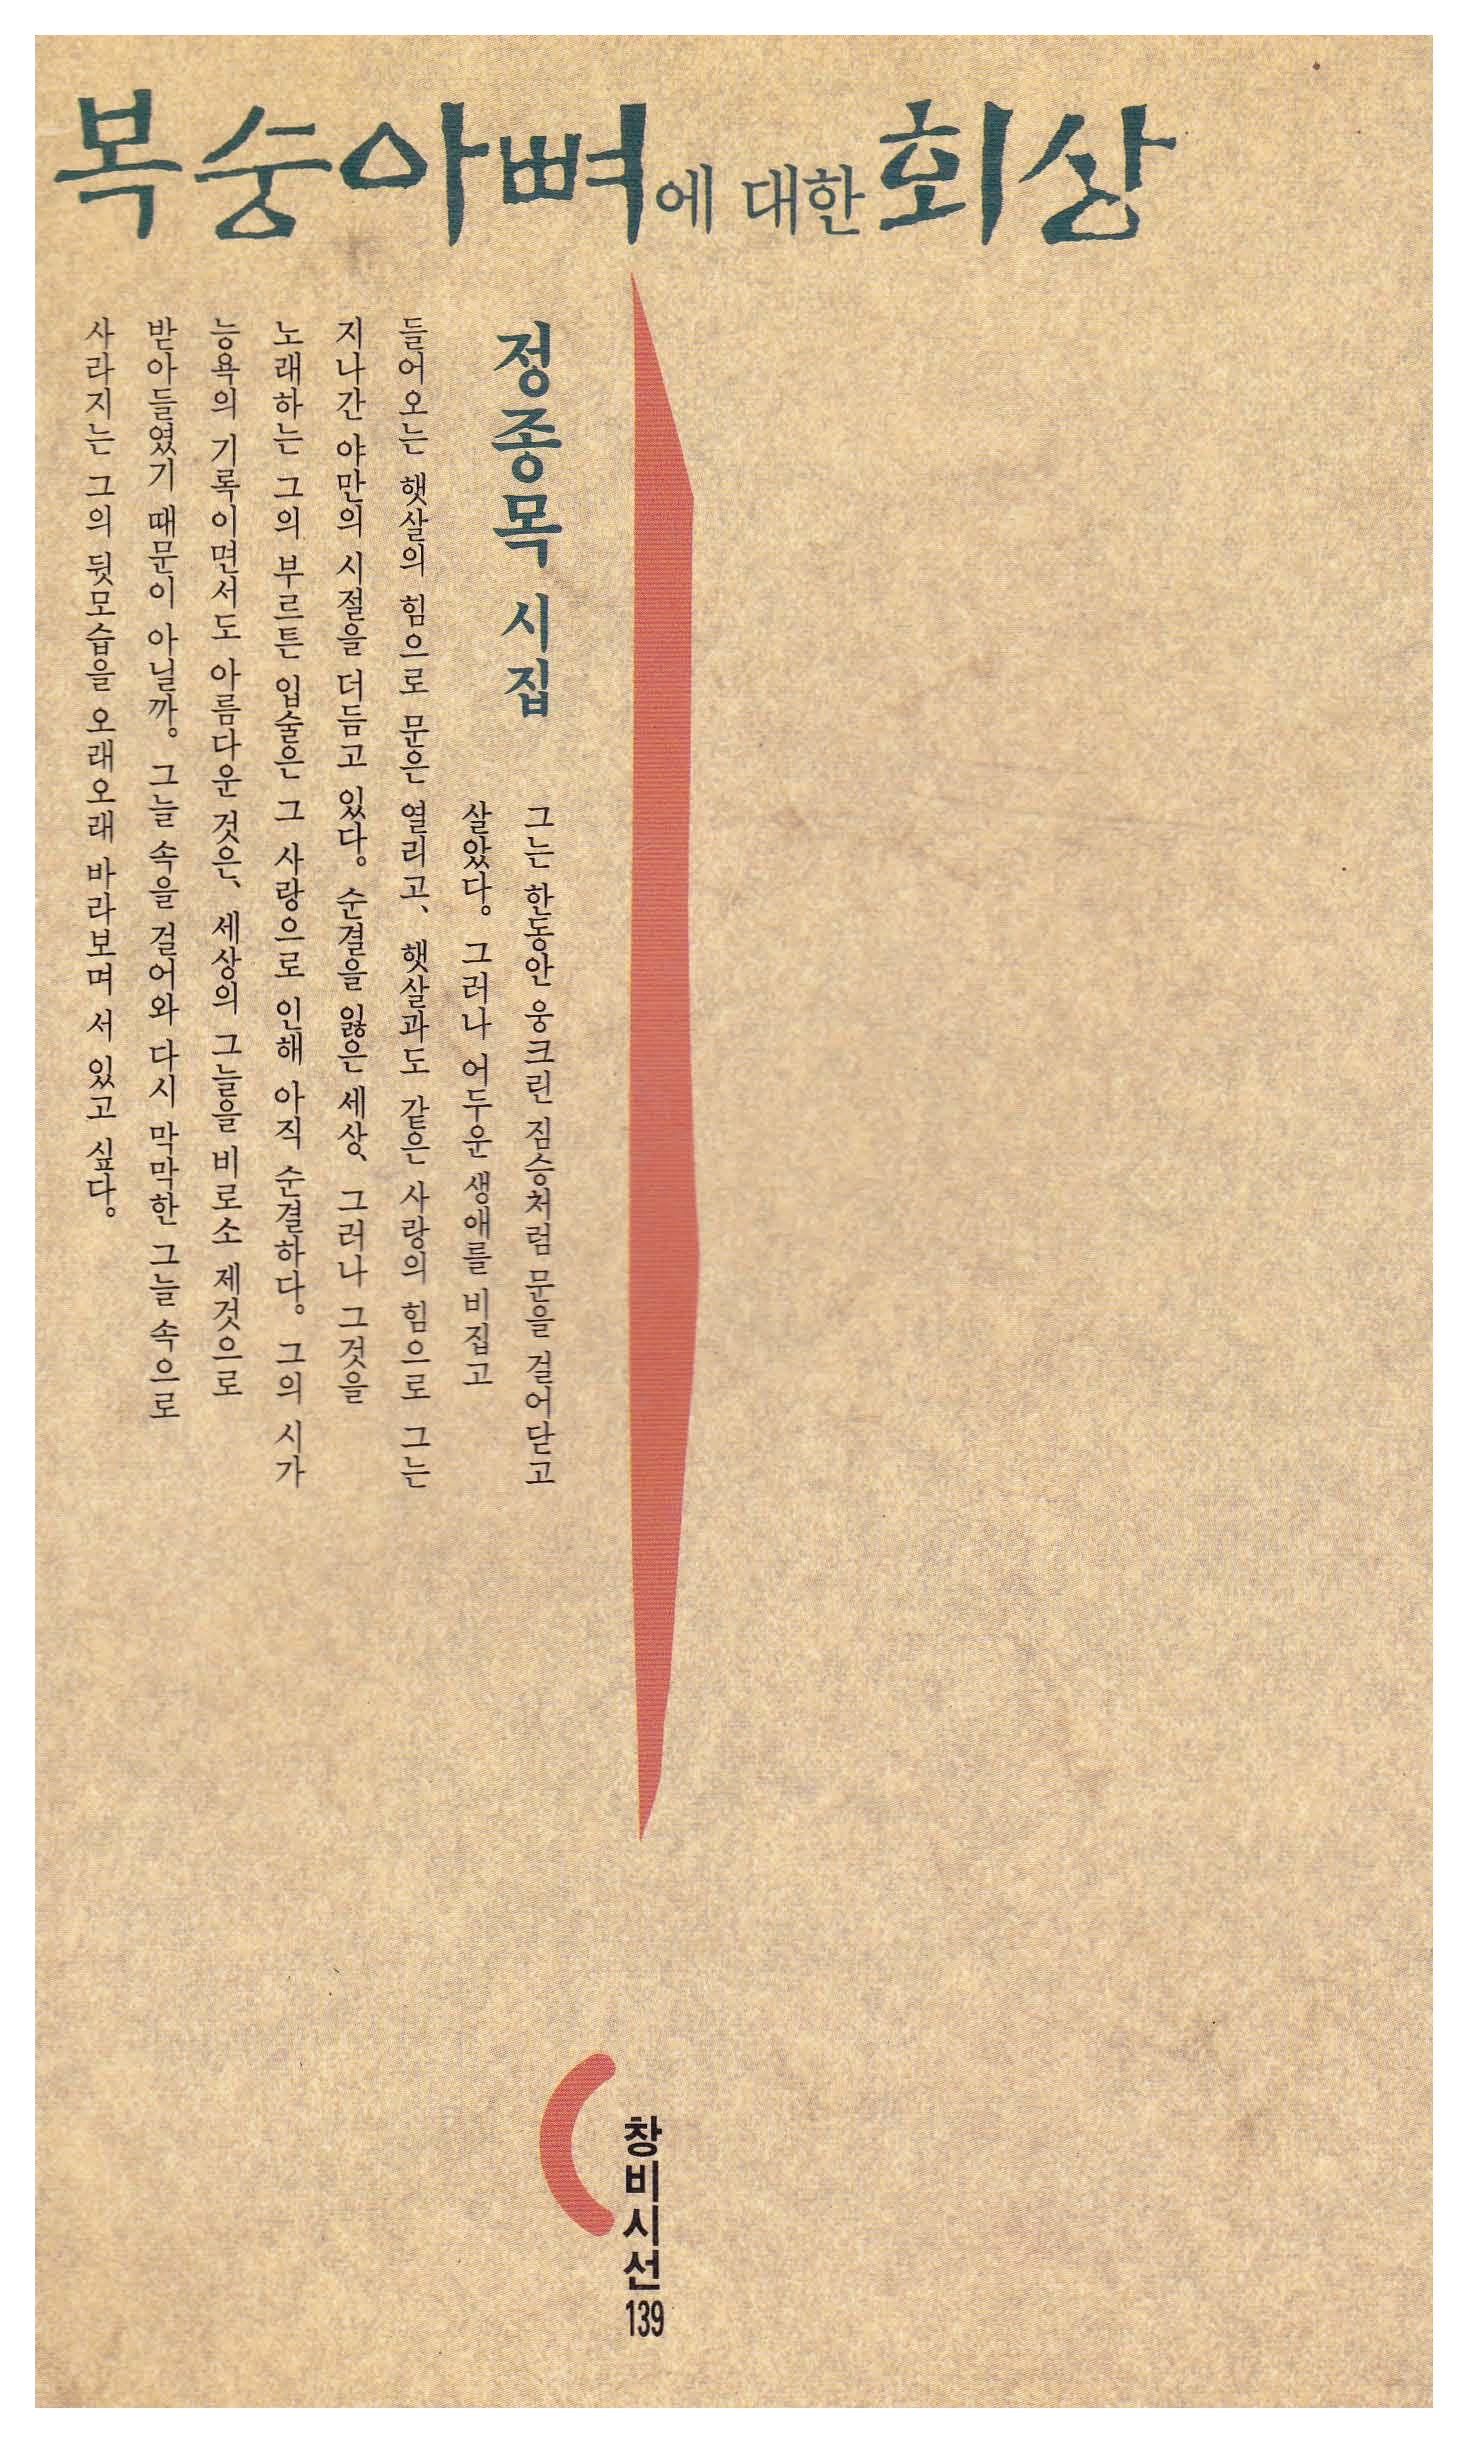 복숭아뼈에 대한 회상
정종목 시집
그는 한동안 웅크린 짐승처럼 문을 걸어닫고
살았다. 그러나 어두운 생애를 비집고
들어오는 햇살의 힘으로 문은 열리고, 햇살과도 같은 사랑의 힘으로 그는
지나간 야만의 시절을 더듬고 있다. 순결을 잃은 세상, 그러나 그것을
노래하는 그의 부르튼 입술은 그 사랑으로 인해 아직 순결하다. 그의 시가
능욕의 기록이면서도 아름다운 것은, 세상의 그늘을 비로소 제것으로
받아들였기 때문이 아닐까. 그늘 속을 걸어와 다시 막막한 그늘 속으로
사라지는 그의 뒷모습을 오래오래 바라보며 서 있고 싶다.
창비시선
139